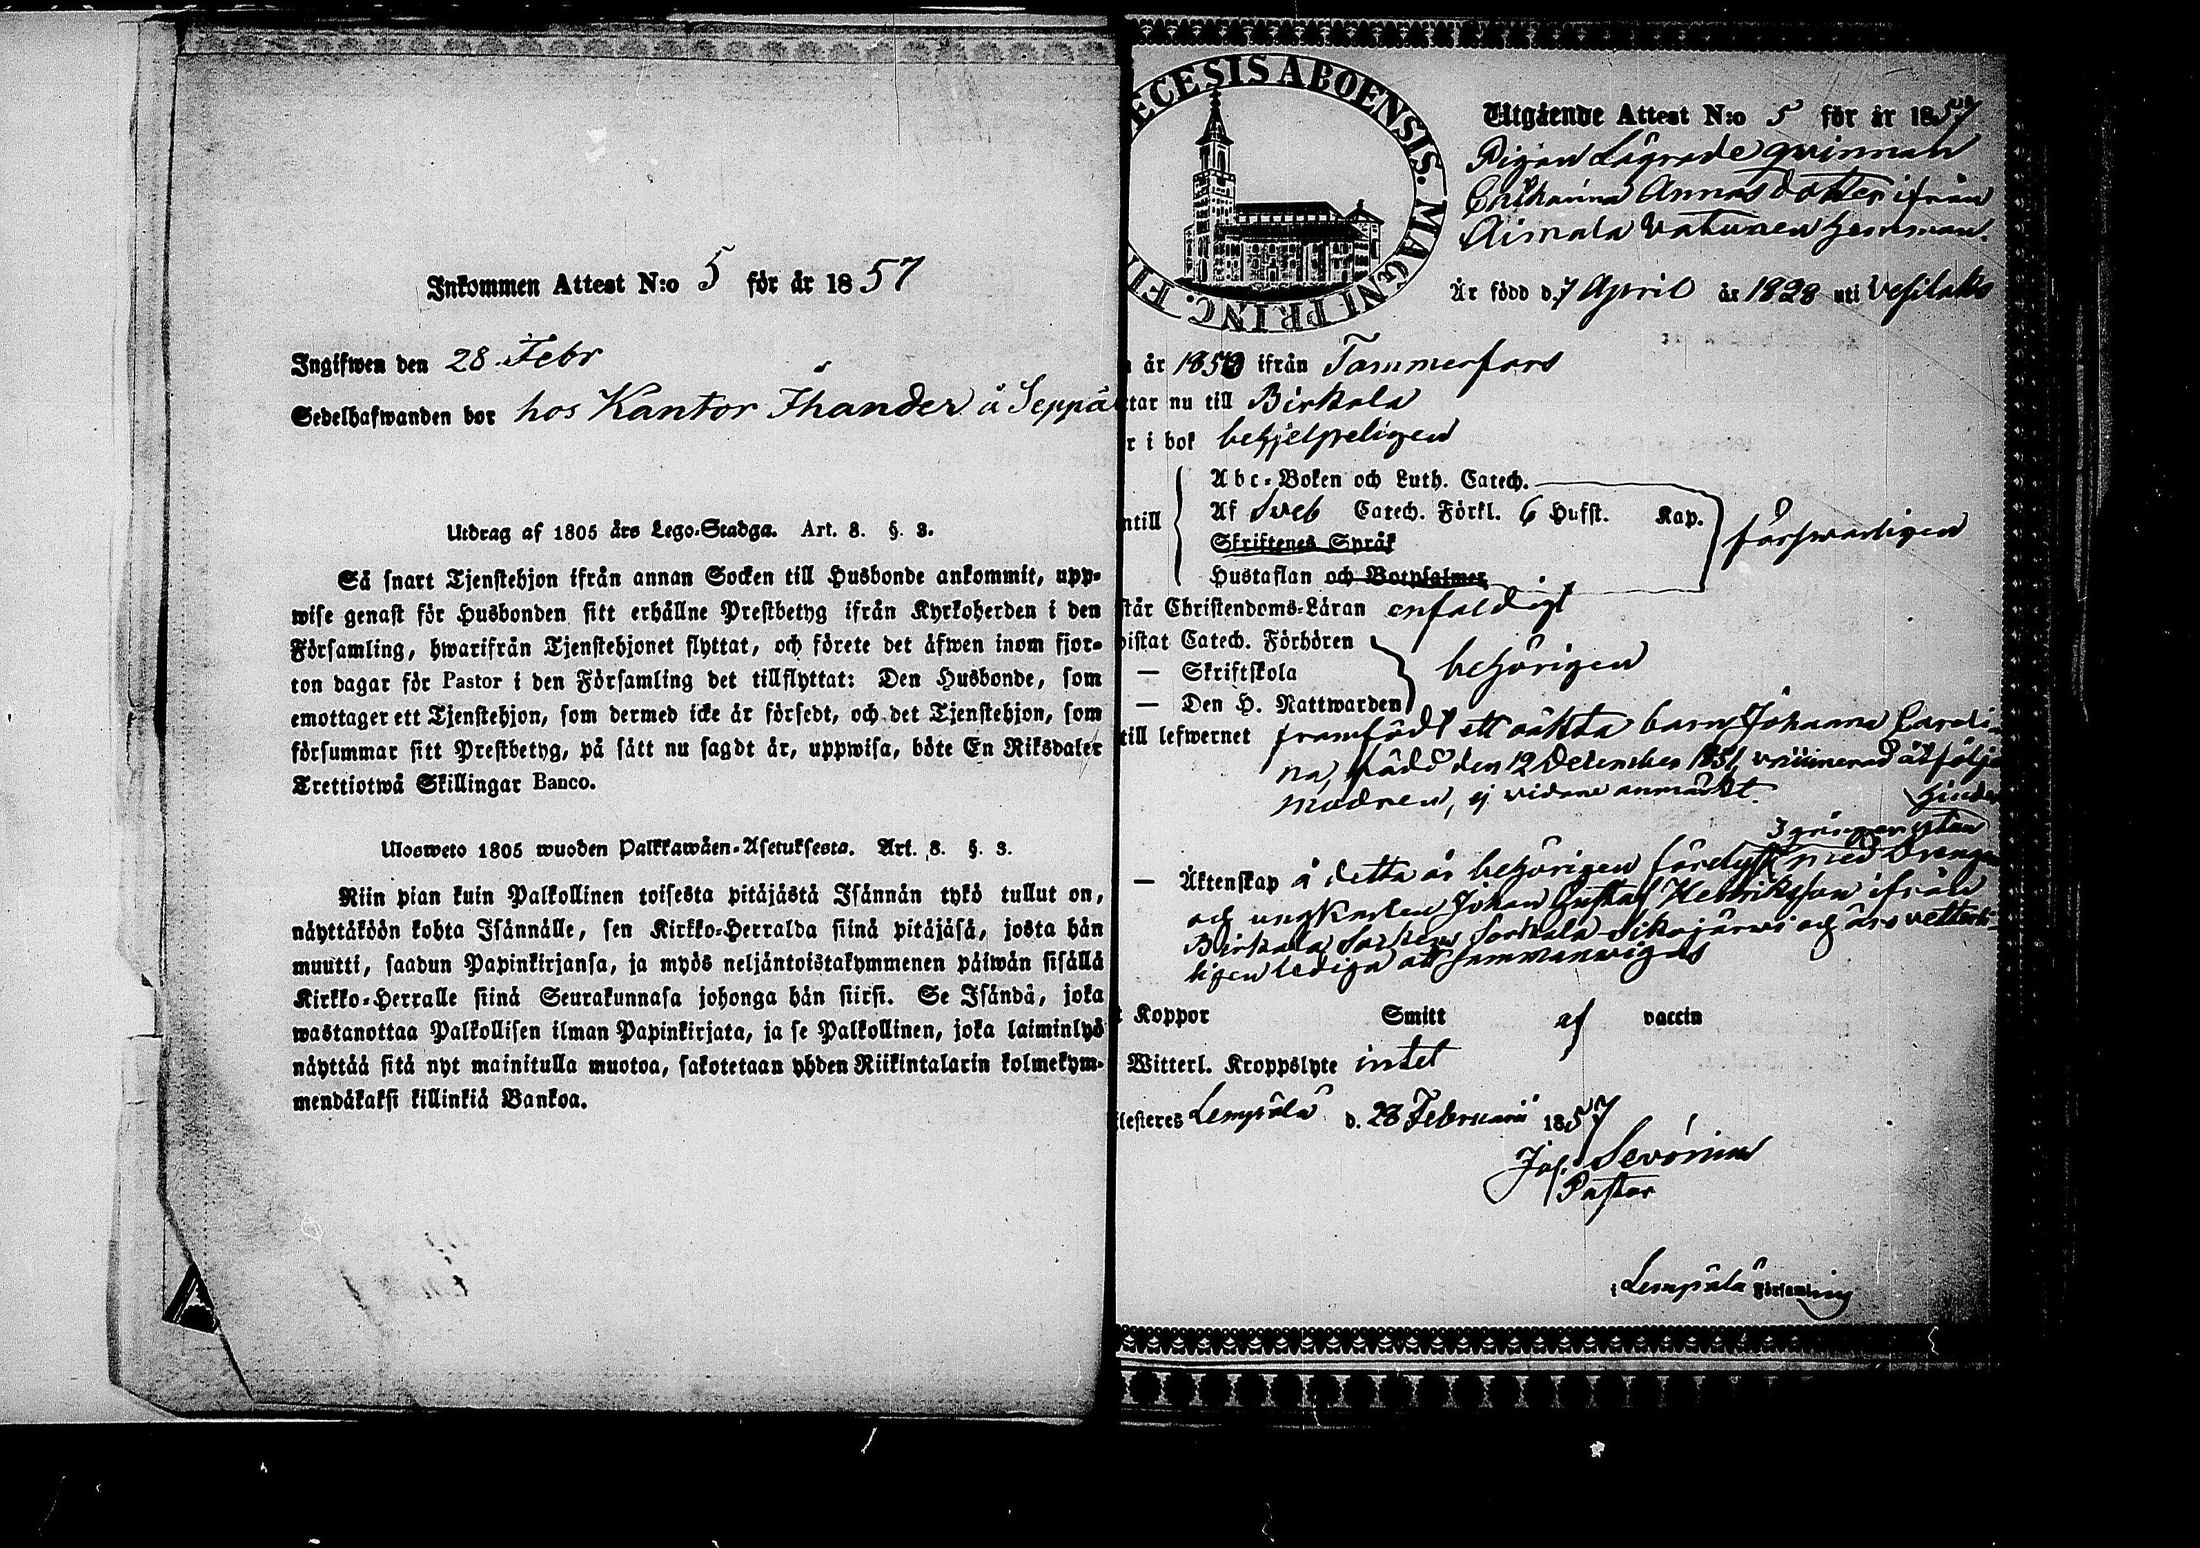 Inkommen Attest N:o 5 för år 1857
Ingifwen den 28 Febr
Sedelhafwanden bor hos Kantor Thander å Seppä
Utdrag af 1805 års Lego-Stadga. Art. 8. §. 3.
Så snart Tjenstehjon ifrån annan Socken till Husbonde ankommit, upp-
wise genast för Husbonden sitt erhållne Prestbetyg ifrån Kyrkoherden i den
Församling, hwarifrån Tjenstehjonet flyttat, och förete det äfwen inom fjor-
ton dagar för Pastor i den Församling det tillflyttat: Den Husbonde, som
emottager ett Tjenstehjon, som dermed icke är försedt, och det Tjenstehjon, som
försummar sitt Prestbetyg, på sätt nu sagdt är, uppwisa, böte En Riksdaler
Trettiotwå Skillingar Banco.
Ulosweto 1805 wuoden Palkkawäen-Asetuksesta. Art. 8. §. 3.
Niin pian kuin Palkollinen toisesta pitäjästä Isännän tykö tullut on,
näyttäköön kohta Isännälle, sen Kirkko-Herralda siinä pitäjäsä, josta hän
muutti, saadun Papinkirjansa, ja myös neljäntoistakymmenen päiwän sisällä
Kirkko-Herralle siinä Seurakunnasa johonga hän siirsi. Se Isändä, joka
wastanottaa Palkollisen ilman Papinkirjata, ja se Palkollinen, joka laiminlyö
näyttää sitä nyt mainitulla muotoa, sakotetaan yhden Riikintalarin kolmekym-
mendäkaksi killinkiä Bankoa.
ECESIS ABOENSIS. MAGNI PRINC. FI
Utgående Attest N:o 5 för år 1857
Pigan Lägrade qvinnan
Annasdotter ifrån
Aimala Vatunen hemman.
Är född d. 7 April år 1828 uti Vesilaks
år 185 ifrån Tammerfors
tar nu till Birkala
r i bok behjelpeligen
Abc-Boken och Luth. Catech.
ntill Af Sveb Catech. Förkl. 6 Hufst. Kap. försvarligen
Skriftenes Språk
Hustaflan och Botpsalmer
står Christendoms-Läran enfaldigt
istat Catech. Förhören
— Skriftskola behörigen
— Den H. Nattwarden
till lefwernet framfödt ett oäkta barn Johanna Caroli-
na, född den 12 December 1851, vaccinerad åtfölja
modren, ej vidare anmärkt.
hinder
3 gånger utan
— Äktenskap å detta är behörigen förelyst med Drengen
och ungkarlen Johan Gustaf Henriksson ifrån
Birkala Socken Sorkala Sikojärvi och äro vetterli-
ligen lediga att sammanvigas
t Koppor Smitt af vaccin
Witterl. Kroppslyte intet
testeres Lempälä d. 28 Februarii 1857
Jos. Sevonius
Pastor
i Lempälä Församling